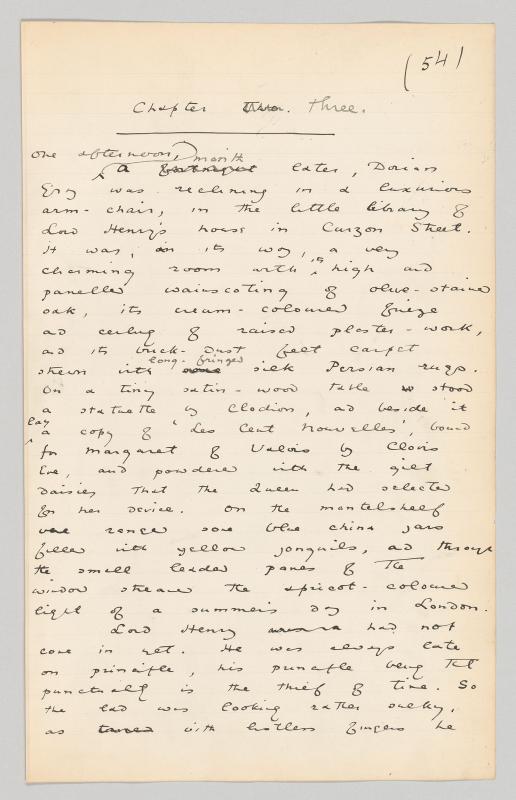 (54)
Chapter Two. Three.
One afternoon, month
A fortnight later, Dorian
Gray was reclining in a luxurious
arm-chair, in the little library of
Lord Henry's house in Curzon Street.
It was, in its way, a very
its
charming room with high and
panelled wainscoting of olive-stained
oak, its cream-coloured frieze
and ceiling of raised plaster-work,
and its brick-dust felt carpet
long-fringed
strewn with some silk Persian rugs.
On a tiny satin-wood table stood
a statuette by Clodion, and beside it
lay
a copy of 'Les Cent Nouvelles', bound
for Margaret of Valois by Clovis
Eve, and powdered with the gilt
daisies that the Queen had selected
for her device. On the mantelshelf
were ranged some blue china jars
filled with yellow jonquils, and through
the small leaded panes of the
window streamed the apricot-coloured
light of a summer's day in London.
Lord Henry had not
come in yet. He was always late
on principle, his principle being that
punctuality is the thief of time. So
the lad was looking rather sulky,
as with listless fingers he